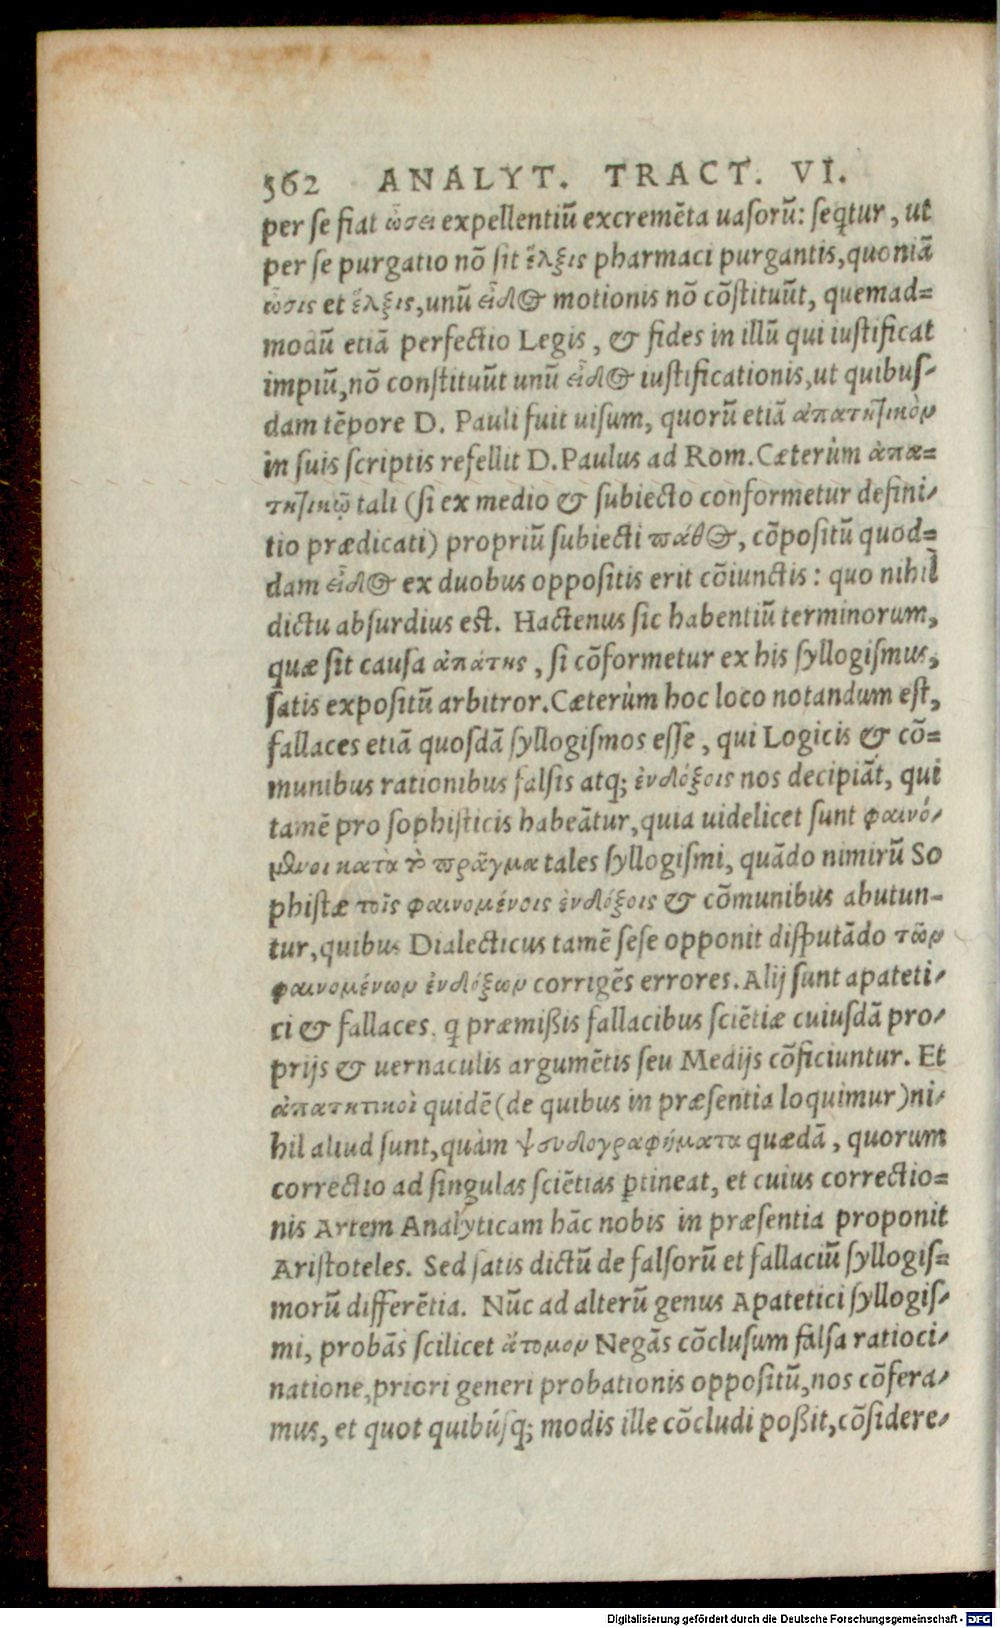 562 ANALYT. TRACT. VI.
per se fiat ὦσει expellentiũ excremẽta uasorũ: seqtur, ut
per se purgatio nõ sit ἕλξις pharmaci purgantis, quoniã
ὦσις et ἕλξις, unũ εἶδος motionis nõ cõstituũt, quemad=
modũ etiã perfectio Legis, & fides in illũ qui iustificat
impiũ, nõ constituũt unũ εἶδος iustificationis, ut quibus-
dam tẽpore D. Pauli fuit uisum, quorũ etiã ἀπατητικὸν
in suis scriptis refellit D. Paulus ad Rom. Cæterùm ἀπα=
τητικῷ tali (si ex medio & subiecto conformetur defini-
tio prædicati) propriũ subiecti πάθος, cõpositũ quod=
dam εἶδος ex duobus oppositis erit cõiunctis: quo nihil
dictu absurdius est. Hactenus sic habentiũ terminorum,
quæ sit causa ἀπάτης, si cõformetur ex his syllogismus,
satis expositũ arbitror. Cæterùm hoc loco notandum est,
fallaces etiã quosdã syllogismos esse, qui Logicis & cõ=
munibus rationibus falsis atq; ἐνδόξοις nos decipiãt, qui
tamẽ pro sophisticis habeãtur, quia uidelicet sunt φαινό-
μενοι κατὰ τὸ πρᾶγμα tales syllogismi, quãdo nimirũ So
phistæ τοῖς φαινομένοις ἐνδόξοις & cõmunibus abutun-
tur, quibus Dialecticus tamẽ sese opponit disputãdo τῶν
φαινομένων ἐνδόξων corrigẽs errores. Alij sunt apateti-
ci & fallaces, q præmißis fallacibus sciẽtiæ cuiusdã pro-
prijs & uernaculis argumẽtis seu Medijs cõficiuntur. Et
ἀπατητικοὶ quidẽ (de quibus in præsentia loquimur) ni-
hil aliud sunt, quàm ψευδογραφήματα quædã, quorum
correctio ad singulas sciẽtias ꝑtineat, et cuius correctio=
nis Artem Analyticam hãc nobis in præsentia proponit
Aristoteles. Sed satis dictũ de falsorũ et fallaciũ syllogis=
morũ differẽtia. Nũc ad alterũ genus Apatetici syllogis-
mi, probãs scilicet ἄτομον Negãs cõclusum falsa ratioci-
natione, priori generi probationis oppositũ, nos cõfera-
mus, et quot quibúsq; modis ille cõcludi poßit, cõsidere-
Digitalisierung gefördert durch die Deutsche Forschungsgemeinschaft - DFG